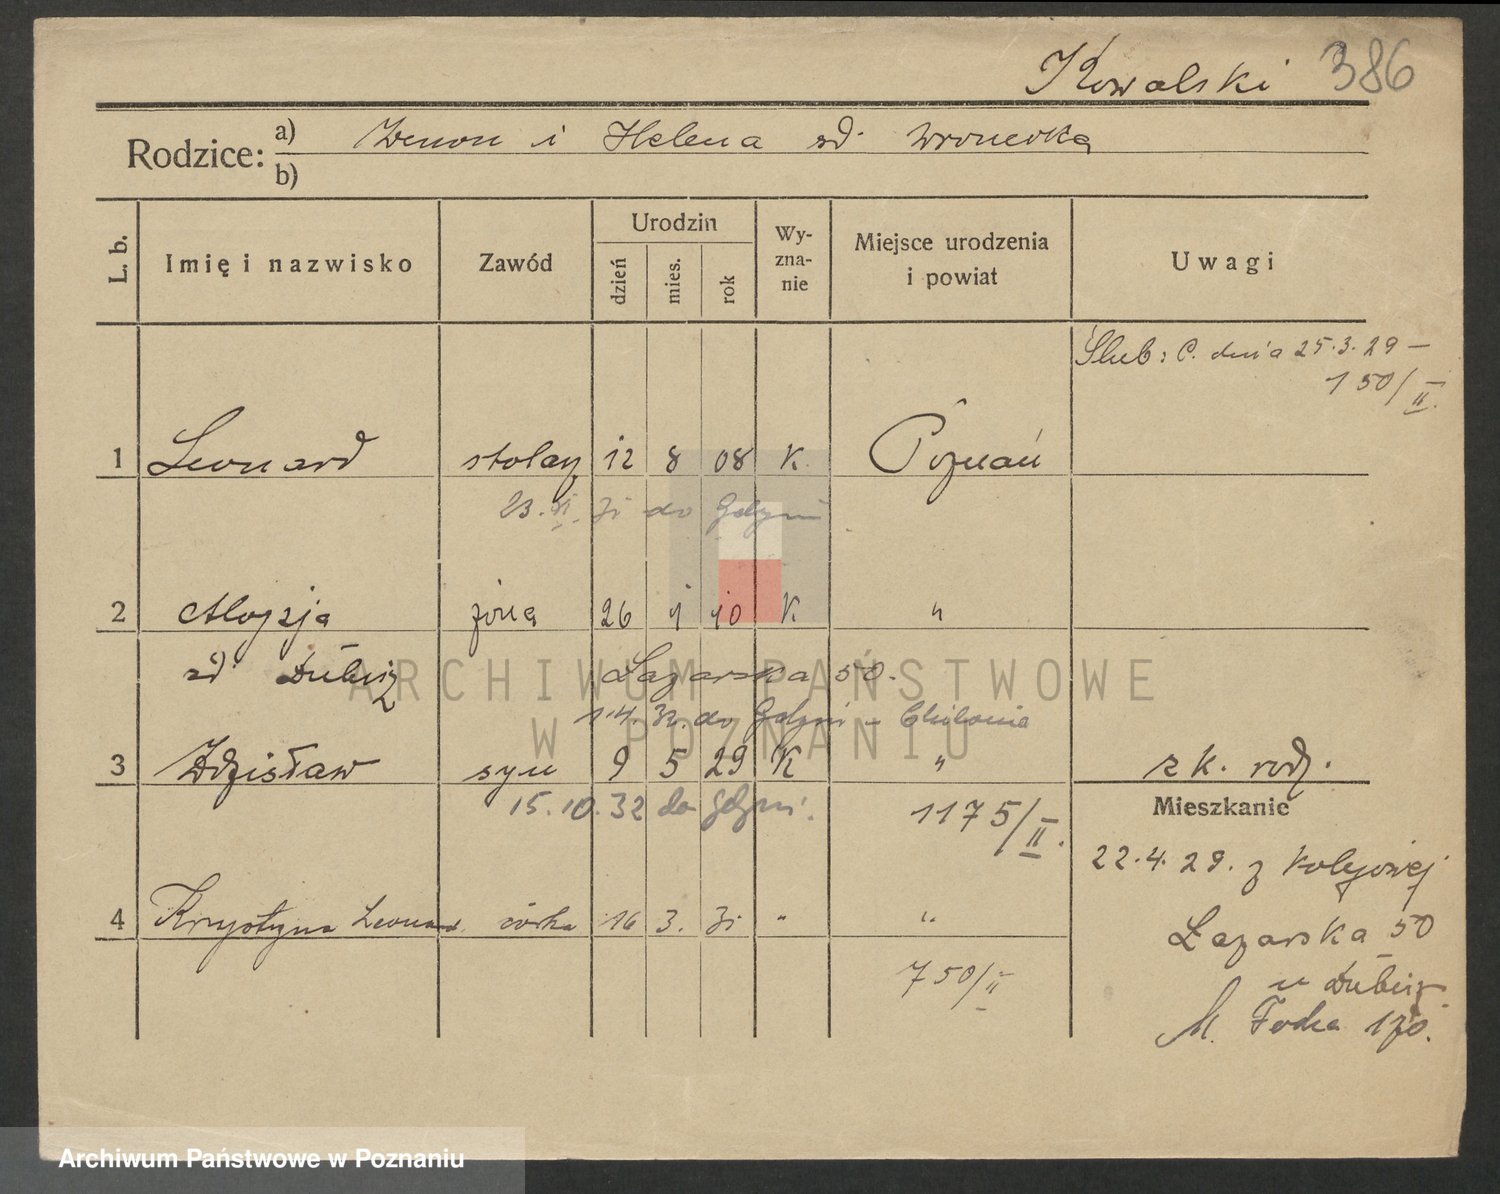 Kowalski 386
Rodzice: a) Zenon i Helena zd. Wronecka
b)
L. b. Imię i nazwisko Zawód Urodzin dzień mies. rok Wyznanie Miejsce urodzenia i powiat Uwagi
Ślub: C. dnia 25.3.29 –
150/II.
1 Leonard stolarz 12 8 08 K. Poznań
23. VI. 31 do Gdyni
2 Alojzja żona 26 1 10 K "
zd. Dubisz Łazarska 50.
1.4.32. do Gdyni – Chilonia
3 Zdzisław syn 9 5 29 K " zk. rodz.
15.10.32 do Gdyni. 1175/II.
Mieszkanie
22.4.29. z Kolejowej
4 Krystyna Leonard. córka 16 3. 31 " "
Łazarska 50
750/II
u Dubisz
M. Focha 170.
ARCHIWUM PAŃSTWOWE
W POZNANIU
Archiwum Państwowe w Poznaniu